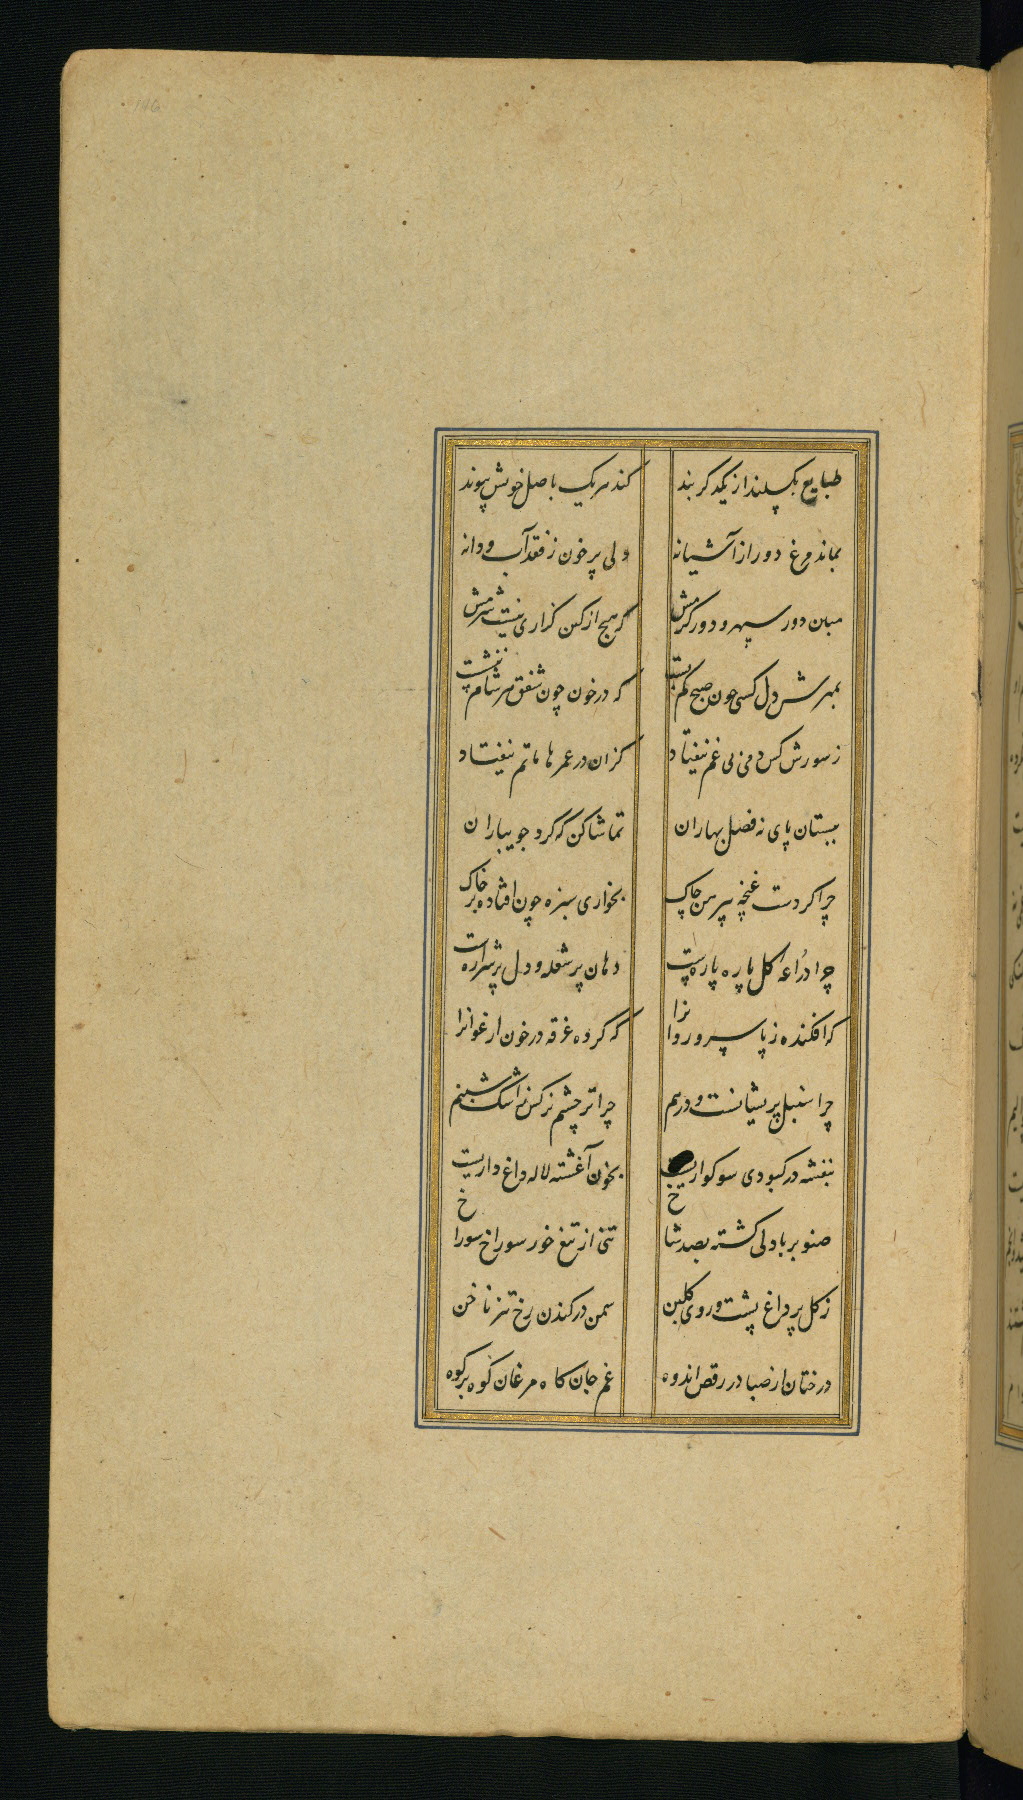 طبایع بگسلند از یکدگر بند کند هر یک باصل خویش پیوند
بماند مرغ دور از آشیانه ولی پر خون ز فقد آب و دانه
مبین دور سپهر و دور گرمش که هیچ از کین گزاری نیست شرمش
بمهرش دل کسی چون صبح کم بست که در خون چون شفق هر شام ننشست
ز سورش کس دمی بی غم نیفتاد کزان در عمرها ماتم نیفتاد
ببستان پای نه فصل بهاران تماشا کن که گرد جویباران
چرا کردست غنچه پیرهن چاک بخواری سبزه چون افتاده بر خاک
چرا دراعه گل پاره پاره‌ست دهان پر شعله و دل پر شراره‌ست
که افکنده ز پا سرو روانرا که کرده غرقه در خون ارغوانرا
چرا سنبل پریشانست و درهم چرا تر چشم نرگس ز اشک شبنم
بنفشه در کبودی سوکواریست بخون آغشته لاله داغ داریست
صنوبر با دلی گشته بصد شاخ تنی از تیغ خور سوراخ سوراخ
ز گل پر داغ پشت و روی گلبن سمن در کندن رخ تیز ناخن
درختان از صبا در رقص اندوه غم جان کاه مرغان کوه بر کوه
146